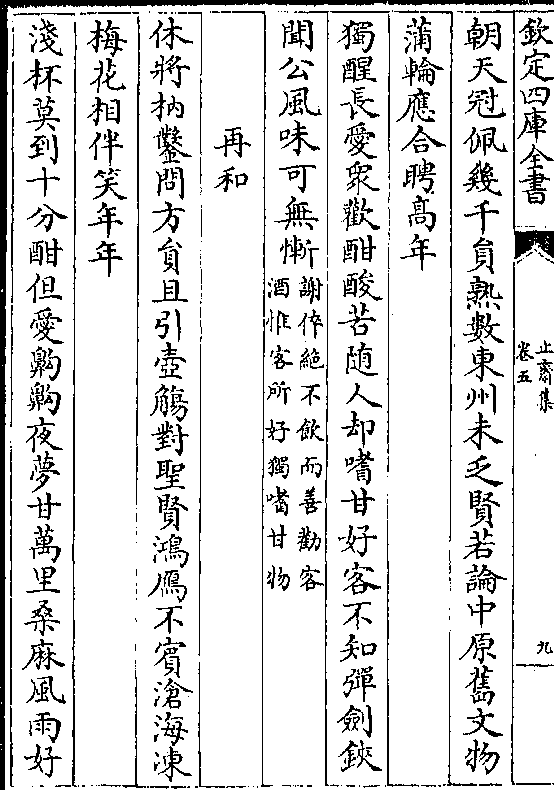 欽定四庫全書
止齋集
卷五
九
朝天冠佩幾千負熟數東州未乏賢若論中原舊文物
蒲輪應合聘髙年
獨醒長愛衆歡酣酸苦随人却嗜甘好客不知彈劍鋏
聞公風味可無慚
謝倅絶不飲而善勸客
酒惟客所好獨嗜甘物
再和
休將枘鑿問方負且引壺觴對聖賢鴻鴈不賓滄海凍
梅花相伴笑年年
淺杯莫到十分酣但愛齁齁夜夢甘萬里桑麻風雨好